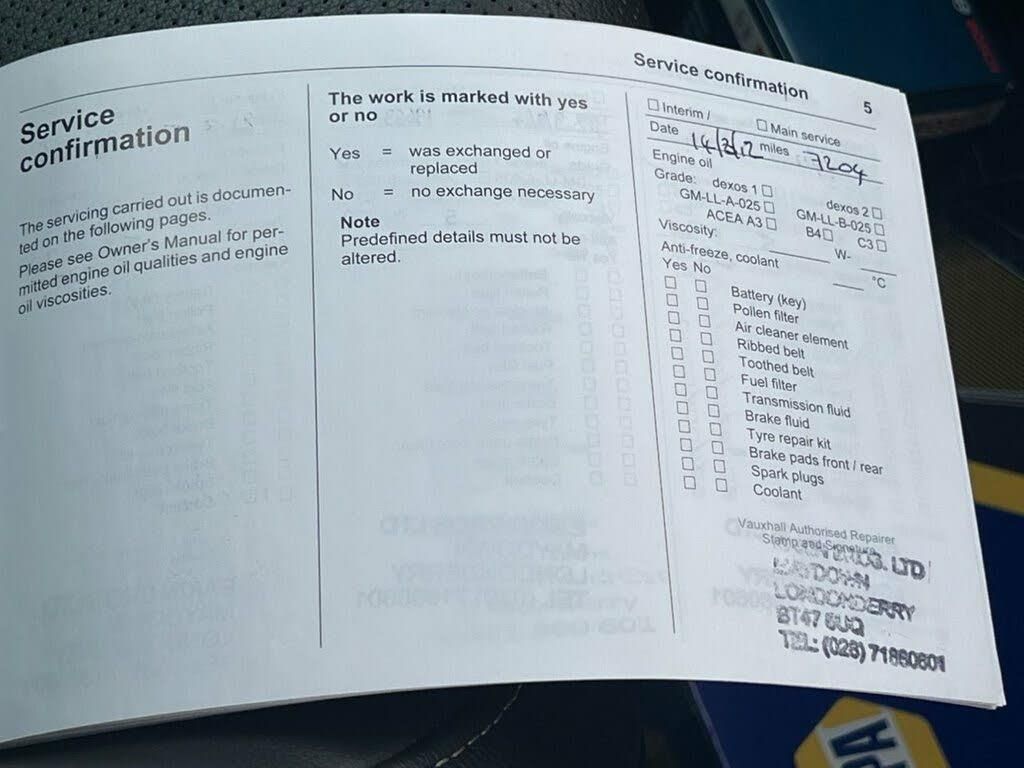 Service confirmation
5
Service
confirmation
The servicing carried out is documen-
ted on the following pages.
Please see Owner's Manual for per-
mitted engine oil qualities and engine
oil viscosities.
The work is marked with yes
or no
Yes = was exchanged or
replaced
No = no exchange necessary
Note
Predefined details must not be
altered.
Interim /
Main service
Date miles 7204
Engine oil
Grade: dexos 1 dexos 2
GM-LL-A-025 GM-LL-B-025
ACEA A3 B4 C3
Viscosity: W-
Anti-freeze, coolant °C
Yes No
Battery (key)
Pollen filter
Air cleaner element
Ribbed belt
Toothed belt
Fuel filter
Transmission fluid
Brake fluid
Tyre repair kit
Brake pads front / rear
Spark plugs
Coolant
Vauxhall Authorised Repairer
Stamp and Signature
LTD
MAYDOWN
LONDONDERRY
BT47 6UQ
TEL: (028) 71860601